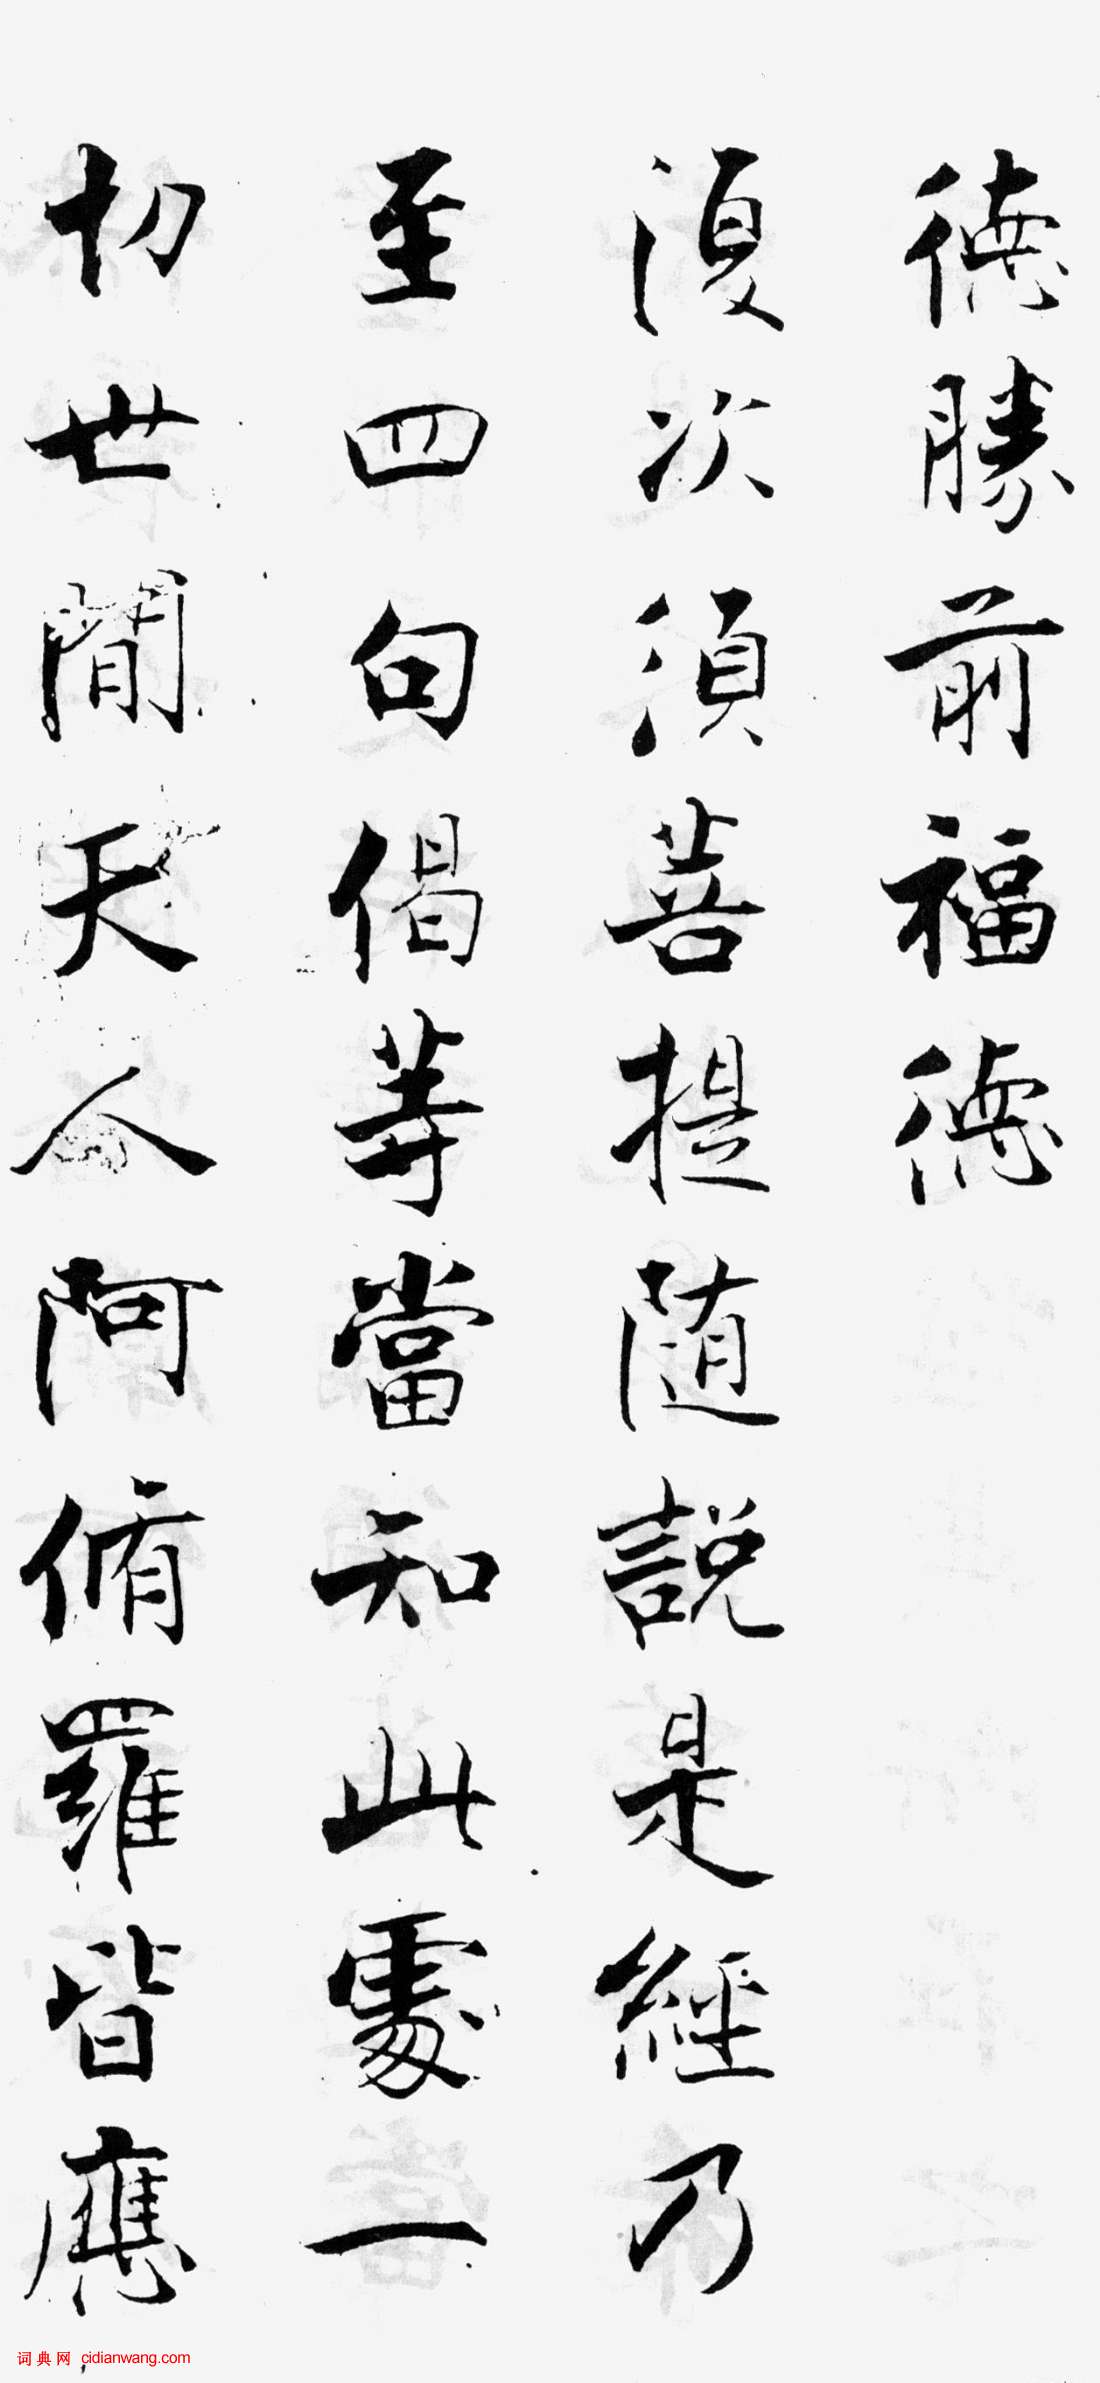 德勝前福德
復次須菩提隨說是經乃
至四句偈等當知此處一
切世間天人阿脩羅皆應
词典网 cidianwang.com